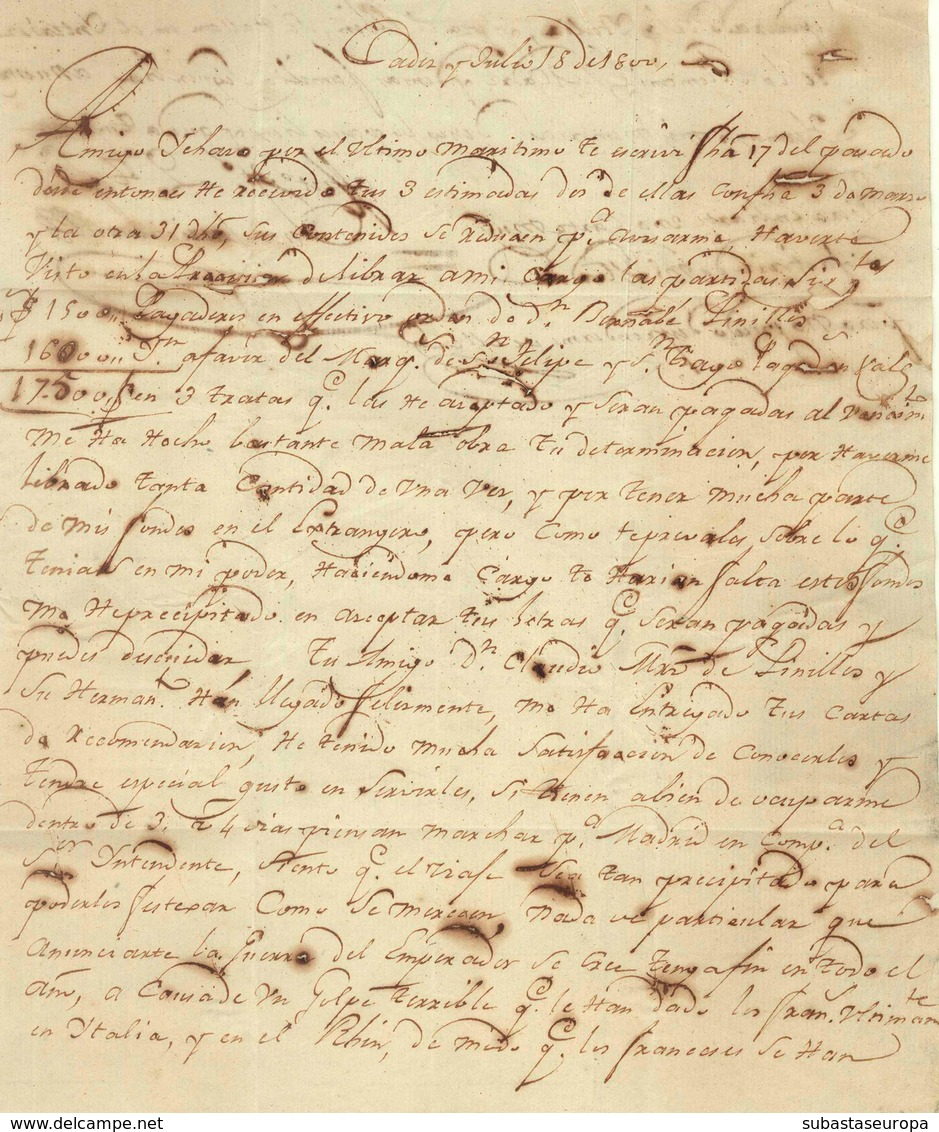 Cadiz y Julio 18 de 1800,
Amigo Y haro por el Ultimo Maritimo te escrivi fha 17 del pasado
desde entonces He recevido tus 3 estimadas dos de ellas con fha 3 de Marzo
y la otra 31 dho, sus Contenidos se reducen pa. avisarme, Haverte
Visto en la Precision de librar a mi Cargo las partidas Sigtes
$ 1500,, Pagaderos en effectivo orden de Dn. Bernabe Pinillos
16000,, Yn. a favor del Marqs. de Sn. Felipe y Sn. Tiago Pagos en Vales
17500 ps en 3 tratas qe. las He aceptado y seran pagadas al Vencimto
Me Ha Hecho bastante mala obra tu determinacion, por Haverme
librado tanta Cantidad de Una Vez, y por tener mucha parte
de mis fondos en el Extrangero, pero Como te prevales sobre lo qe.
tenias en mi poder, Haciendome Cargo te Harian falta estos fondos
me He precipitado en aceptar tus Letras qe. Seran pagadas y
puedes descuidar Tu Amigo Dn. Claudio Mrz. de Pinillos y
Su Herman. Han llegado felizmente, me Ha Entregado tus Cartas
de Recomendacion, He tenido mucha Satisfacion de Conocerles y
tendre especial gusto en Servirles, Si tienen a bien de ocuparme
dentro de 3, a 4 dias piensan marchar pa. Madrid en Compa. del
Sor Yntendente, Siento qe. el viaje Sea tan precipitado para
poderles festexar Como Se merecen Nada de particular que
Anunciarte la Guerra del Emperador se cree tenga fin en todo el
Año, a Causa de Un Golpe terrible qe. le Han dado los fran. Ultimamte
en Ytalia, y en el Rhin, de modo qe. los franceses Se Han
subastaseuropa